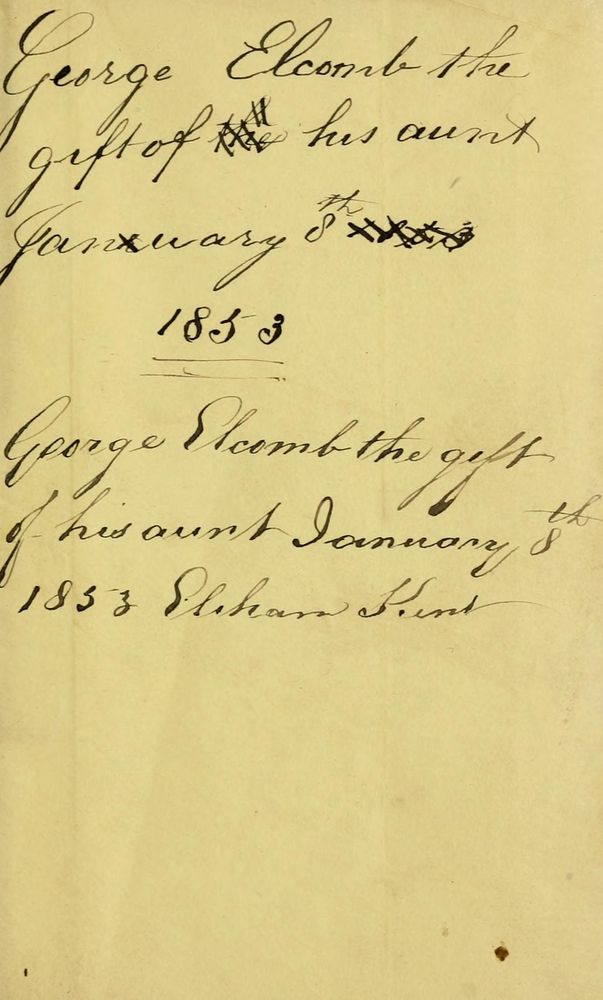 George Elcomb the
gift of the his aunt
January 8th
1853
George Elcomb the gift
of his aunt January 8th
1853 Eltham Kent